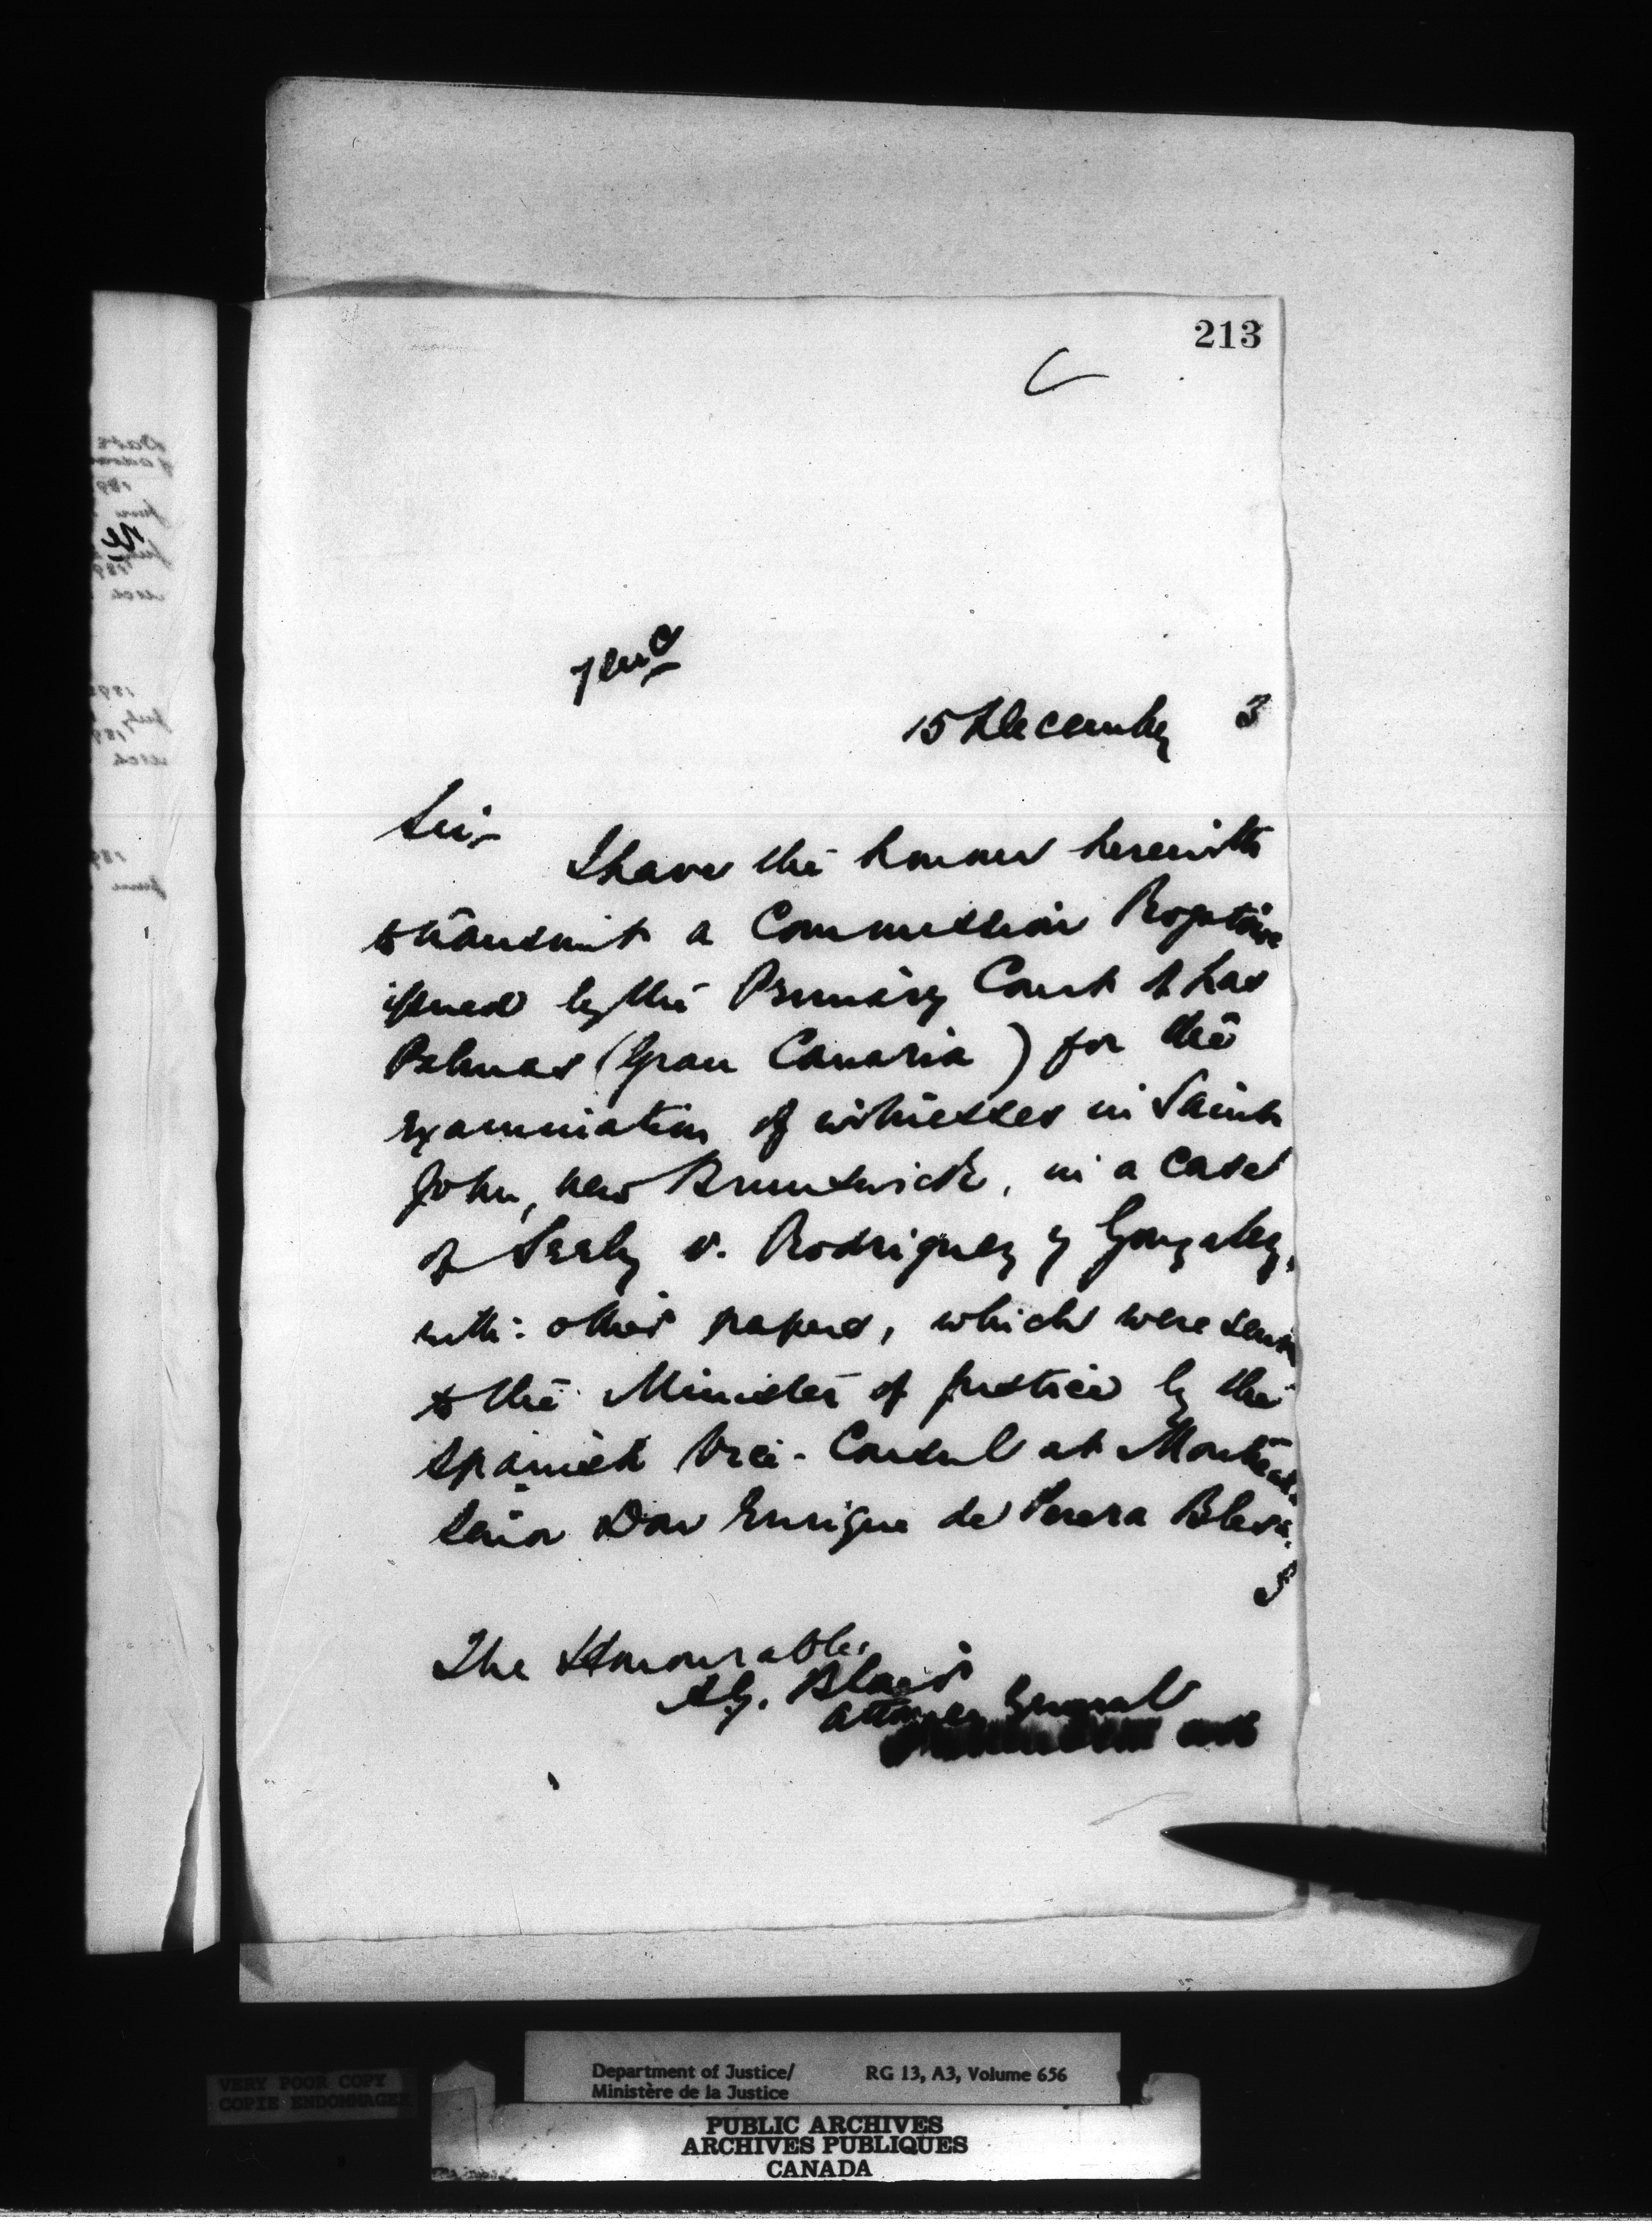 213
15 December 3
Sir,
I have the honour herewith
to transmit a Commission Rogatoire
issued by the Primary Court of Las
Palmas (Gran Canaria) for the
examination of witnesses in Saint
John, New Brunswick, in a case
of Seely v. Rodriguez y Gonzalez,
with other papers, which were sent
to the Minister of Justice by the
Spanish Vice-Consul at Montreal
Señor Don Enrique de Perera Blesa.
I
The Honourable,
A.G. Blair
Attorney General
VERY POOR COPY
COPIE ENDOMMAGEE
Department of Justice/ RG 13, A3, Volume 656
Ministère de la Justice
PUBLIC ARCHIVES
ARCHIVES PUBLIQUES
CANADA